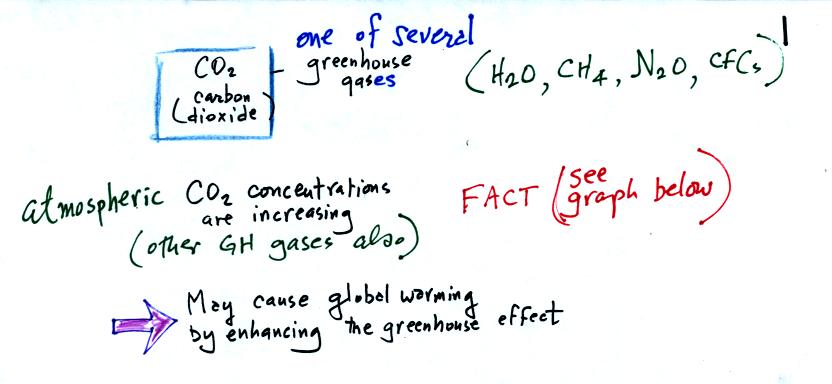 one of several
CO2
(carbon dioxide)
greenhouse gases
(H2O, CH4, N2O, CFCs)
atmospheric CO2 concentrations
are increasing
(other GH gases also)
FACT (see
graph below)
May cause global warming
by enhancing the greenhouse effect